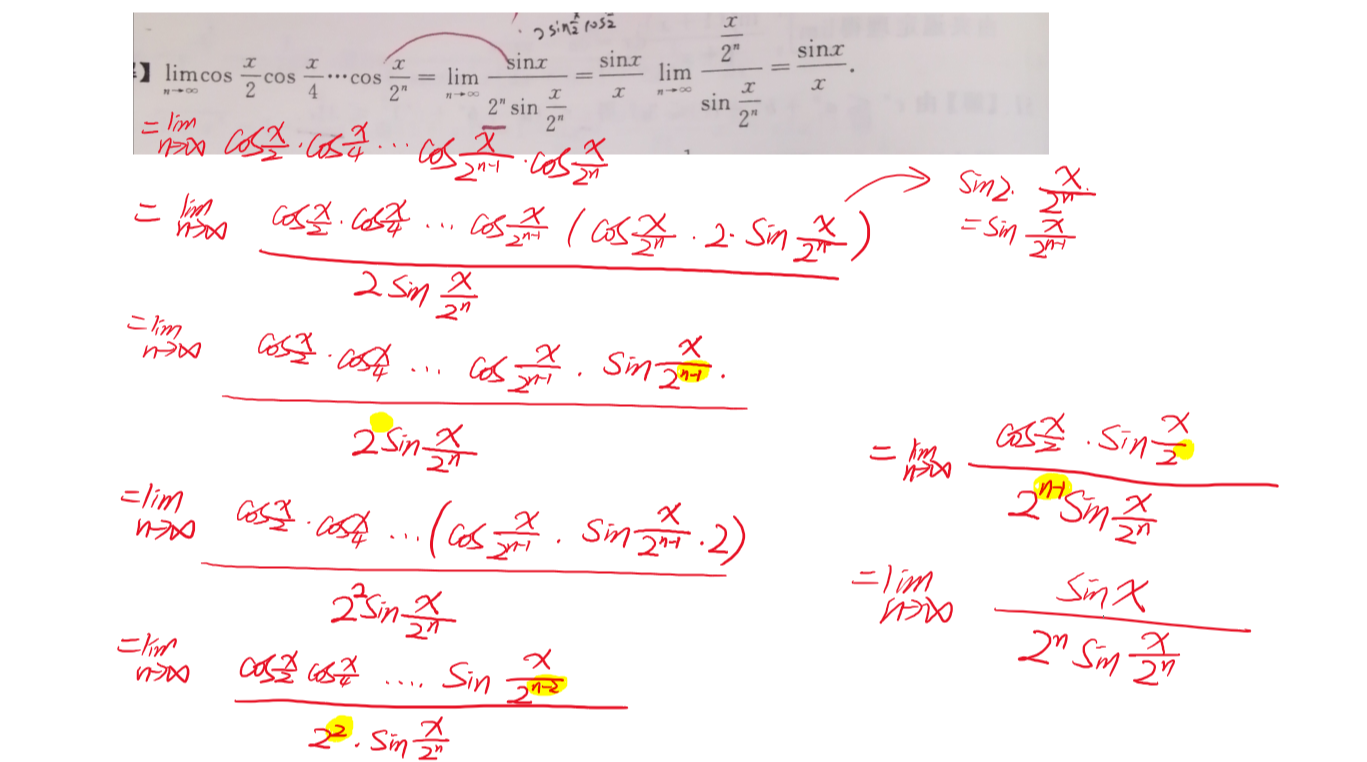 2 sin x/2 cos x/2
】 lim_{n→∞} cos x/2 cos x/4 ⋯ cos x/2ⁿ = lim_{n→∞} sinx / (2ⁿ sin x/2ⁿ) = sinx/x lim_{n→∞} (x/2ⁿ) / (sin x/2ⁿ) = sinx/x .
= lim_{n→∞} cos x/2 · cos x/4 ⋯ cos x/2ⁿ⁻¹ · cos x/2ⁿ
= lim_{n→∞} cos x/2 · cos x/4 ⋯ cos x/2ⁿ⁻¹ ( cos x/2ⁿ · 2 · sin x/2ⁿ ) / (2 sin x/2ⁿ)
sin 2 · x/2ⁿ
= sin x/2ⁿ⁻¹
= lim_{n→∞} cos x/2 · cos x/4 ⋯ cos x/2ⁿ⁻¹ · sin x/2ⁿ⁻¹ . / (2 sin x/2ⁿ)
= lim_{n→∞} cos x/2 · cos x/4 ⋯ ( cos x/2ⁿ⁻¹ · sin x/2ⁿ⁻¹ · 2 ) / (2² sin x/2ⁿ)
= lim_{n→∞} cos x/2 cos x/4 ⋯ sin x/2ⁿ⁻² / (2² · sin x/2ⁿ)
= lim_{n→∞} cos x/2 · sin x/2 / (2ⁿ⁻¹ sin x/2ⁿ)
= lim_{n→∞} sin x / (2ⁿ sin x/2ⁿ)